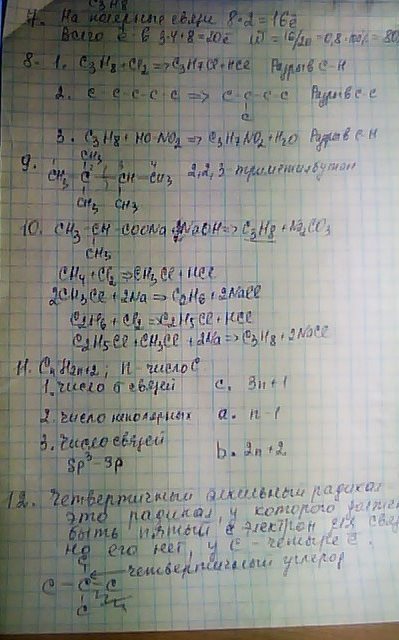 C3H8
7. На полярные связи 8·2=16ē
Всего ē в 3·4+8=20ē W=16/20=0,8·100%=80
8. 1. C3H8+Cl2=>C3H7Cl+HCl Разрыв C-H
2. C-C-C-C-C => C-C-C-C Разрыв C-C
C
3. C3H8+HO-NO2=>C3H7NO2+H2O Разрыв C-H
9. CH3
CH3 C CH-CH3 2,2,3-триметилбутан
CH3 CH3
10. CH3-CH-COONa NaOH=>C3H8+Na2CO3
CH3
CH4+Cl2=>CH3Cl+HCl
2CH3Cl+2Na=>C2H6+2NaCl
C2H6+Cl2=>C2H5Cl+HCl
C2H5Cl+CH3Cl+2Na=>C3H8+2NaCl
11. CnH2n+2; n-число C
1. число σ связей c. 3n+1
2. число неполярных a. n-1
3. Число связей b. 2n+2
Sp³-Sp
12. Четвертичный алкильный радикал -
это радикал, у которого должен
быть пятый ē электрон для связи
но его нет, у C - четыре ē.
C четвертичный углерод
C-C-C
C